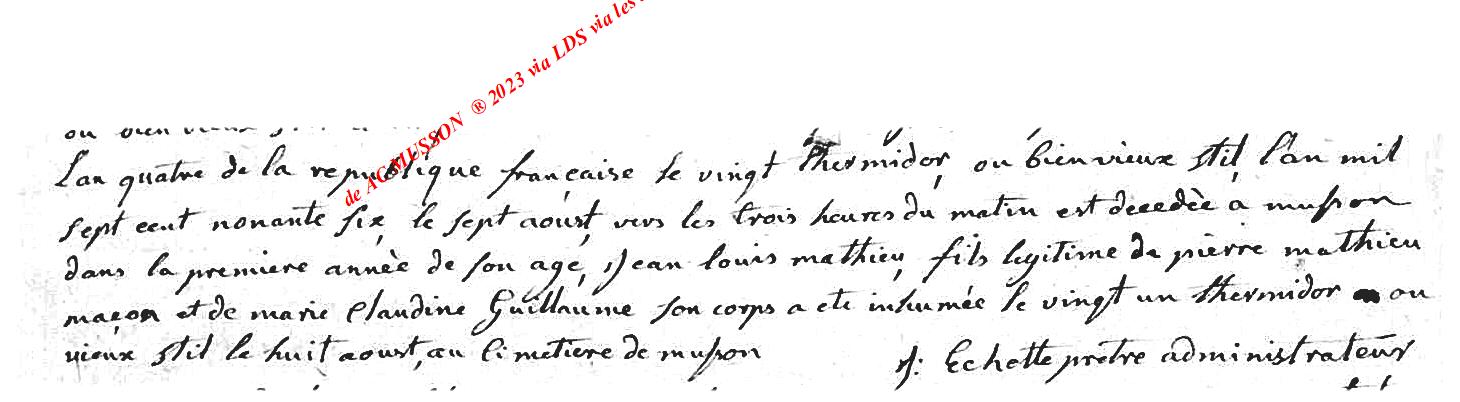 de AGMUSSON ® 2023 via LDS via les
ou bien vieux
Lan quatre de la republique francaise le vingt thermidor, ou bien vieux stil, l'an mil
sept cent nonante six, le sept aoust, vers les trois heures du matin est decedèe a musson
dans la premiere annèe de son age, Jean louis mathieu, fils legitime de pièrre mathieu
maçon et de marie Claudine Guillaume son corps a ete inhumée le vingt un thermidor ou
vieux stil le huit aoust, au cimetiere de musson
J: Echette prètre administrateur